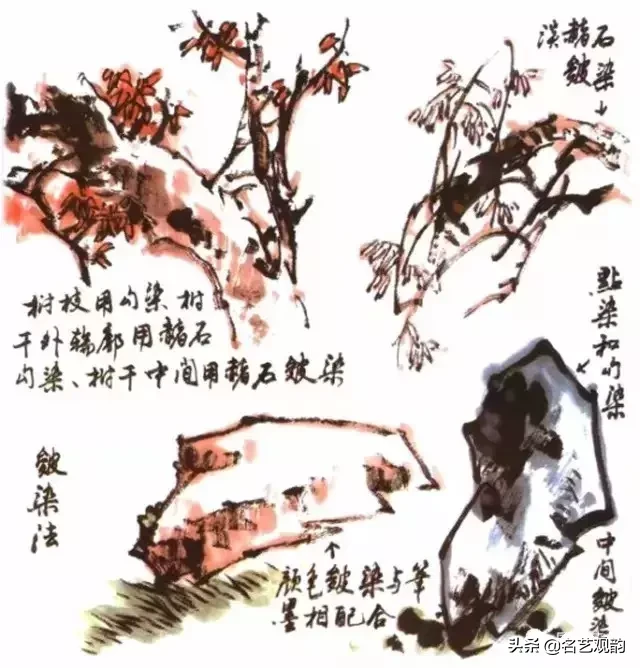 淡赭石
皴染
树枝用勾染、树
干外轮廓用赭石
勾染、树干中间用赭石皴染
點染和勾染
皴染法
颜色皴染与筆
墨相配合
中间皴
头条 @名艺观韵